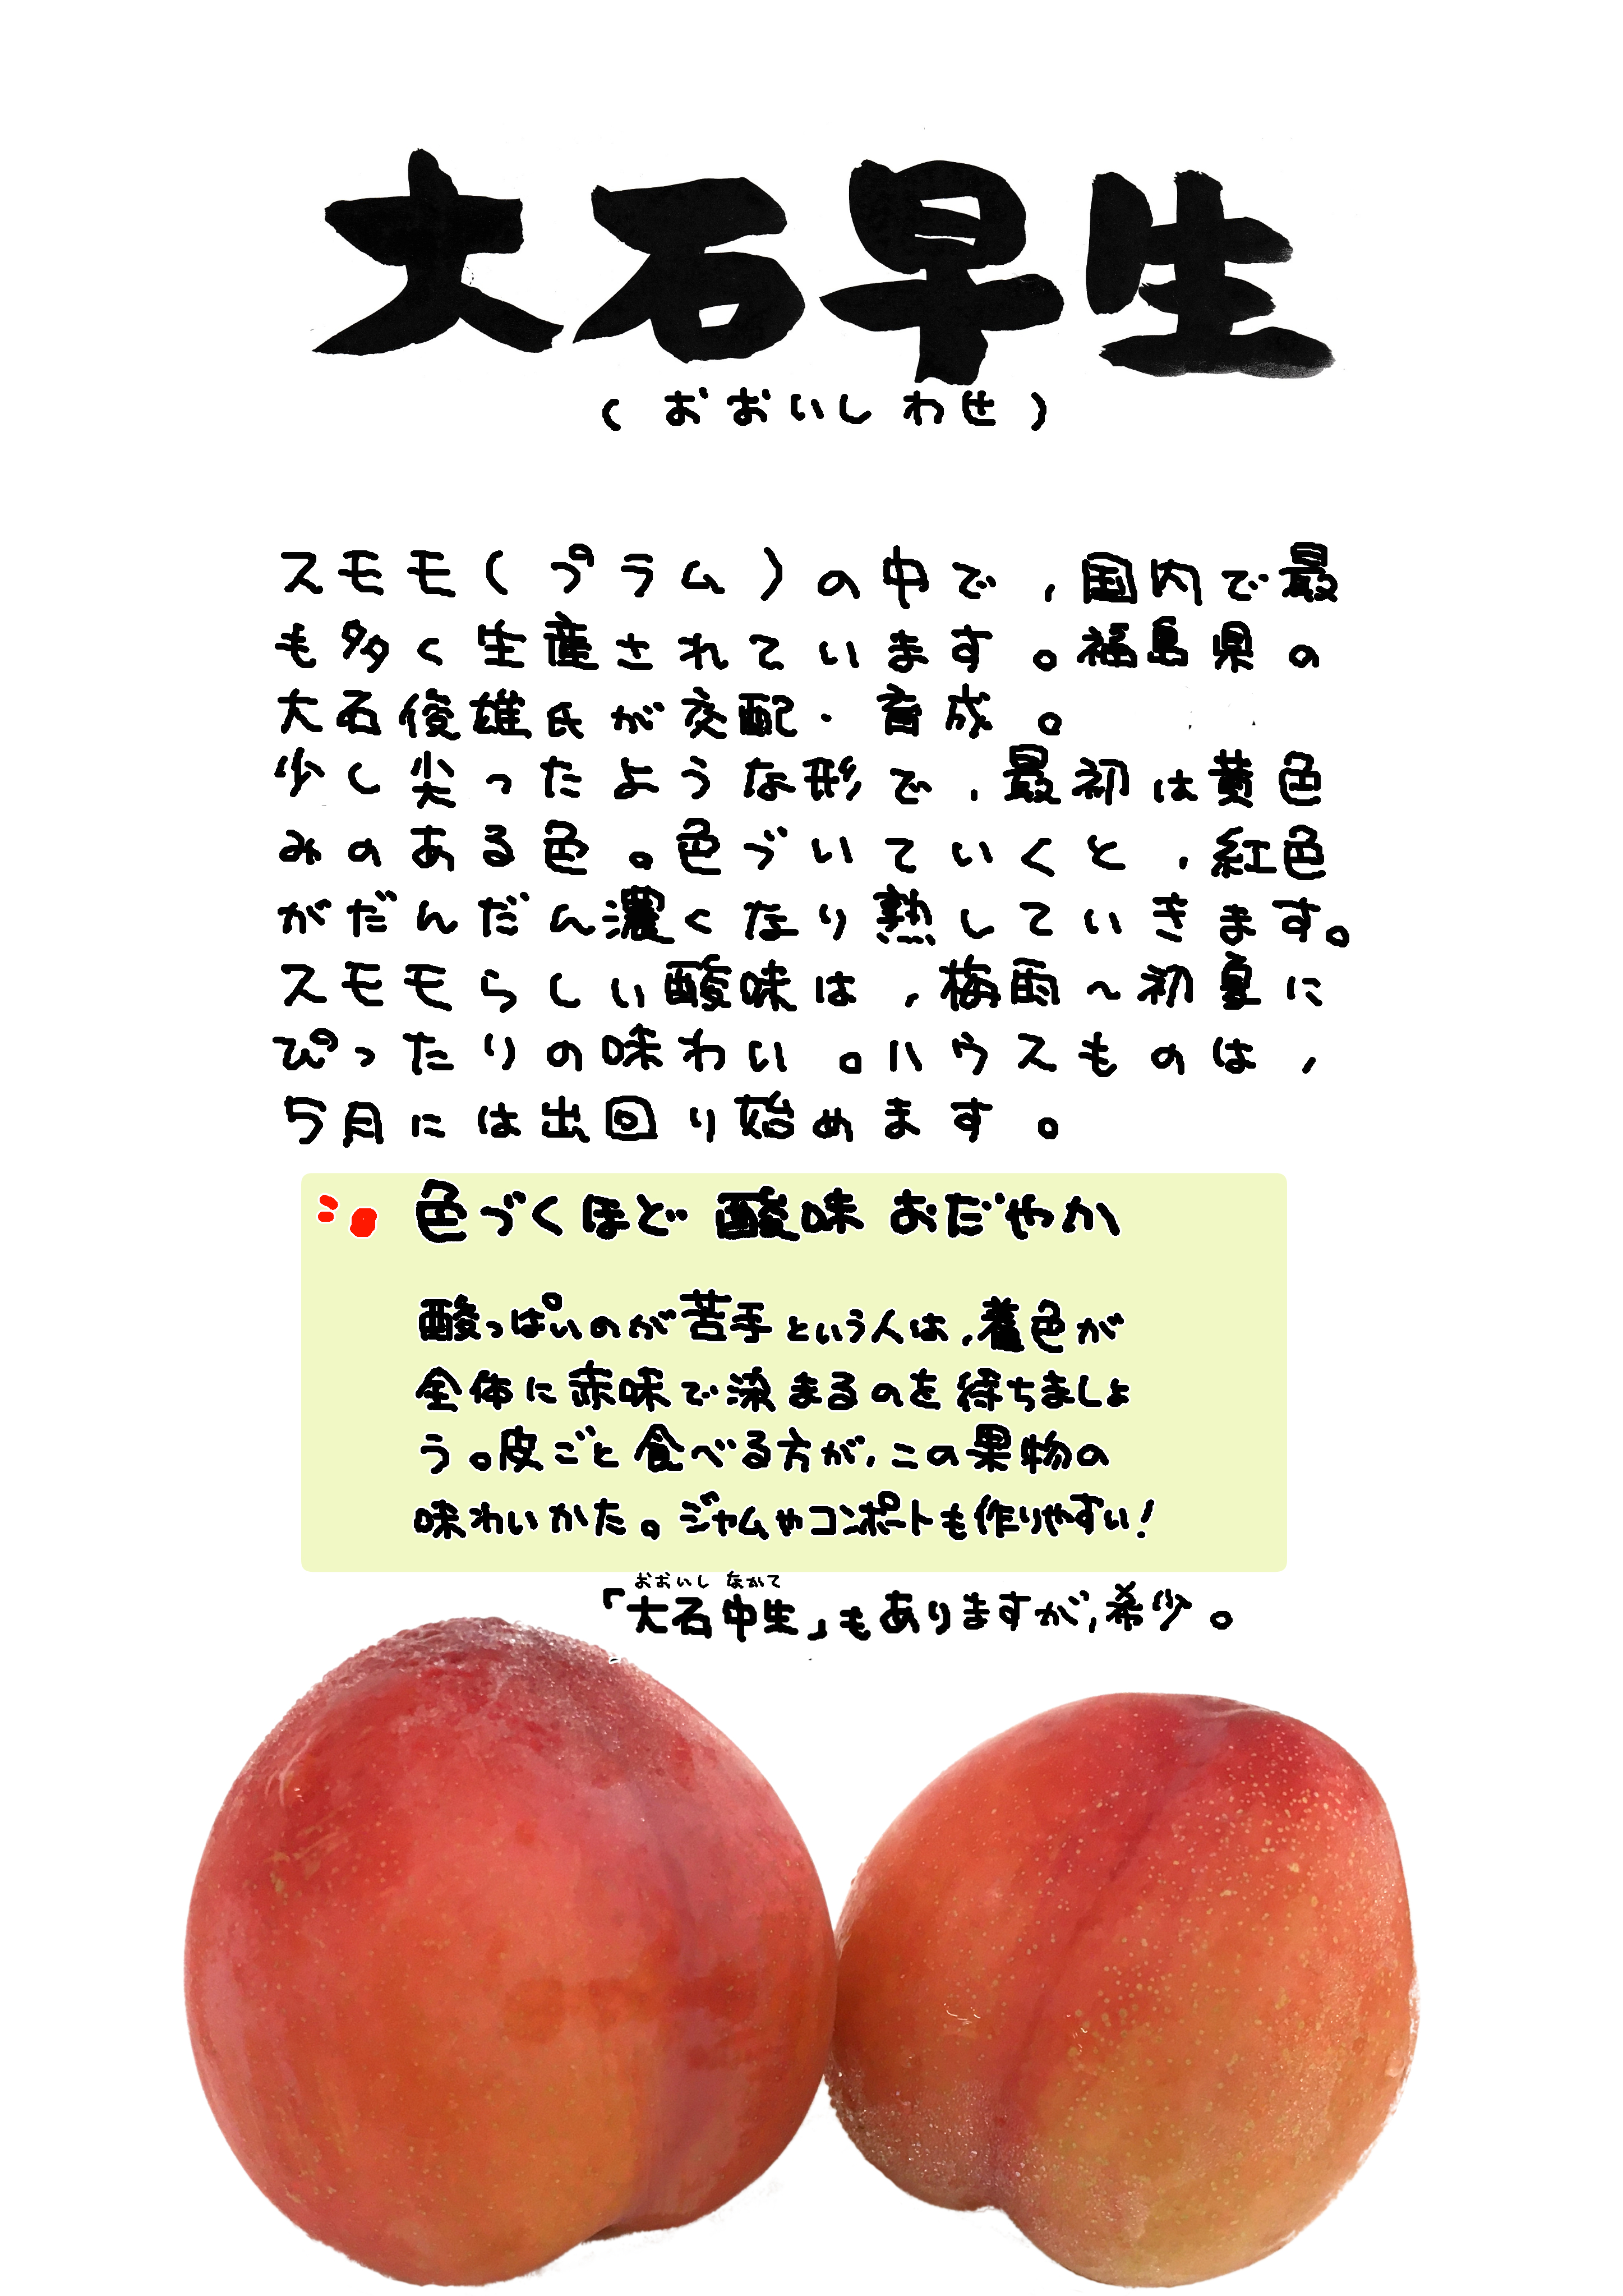 大石早生
(おおいしわせ)
スモモ(プラム)の中で,国内で最
も多く生産されています。福島県の
大石俊雄氏が交配・育成。
少し尖ったような形で,最初は黄色
みのある色。色づいていくと,紅色
がだんだん濃くなり熟していきます。
スモモらしい酸味は,梅雨~初夏に
ぴったりの味わい。ハウスものは,
5月には出回り始めます。
色づくほど 酸味 おだやか
酸っぱいのが苦手という人は,着色が
全体に赤味で染まるのを待ちましょ
う。皮ごと食べる方が,この果物の
味わいかた。ジャムやコンポートも作りやすい!
おおいし なかて
「大石中生」もありますが,希少。